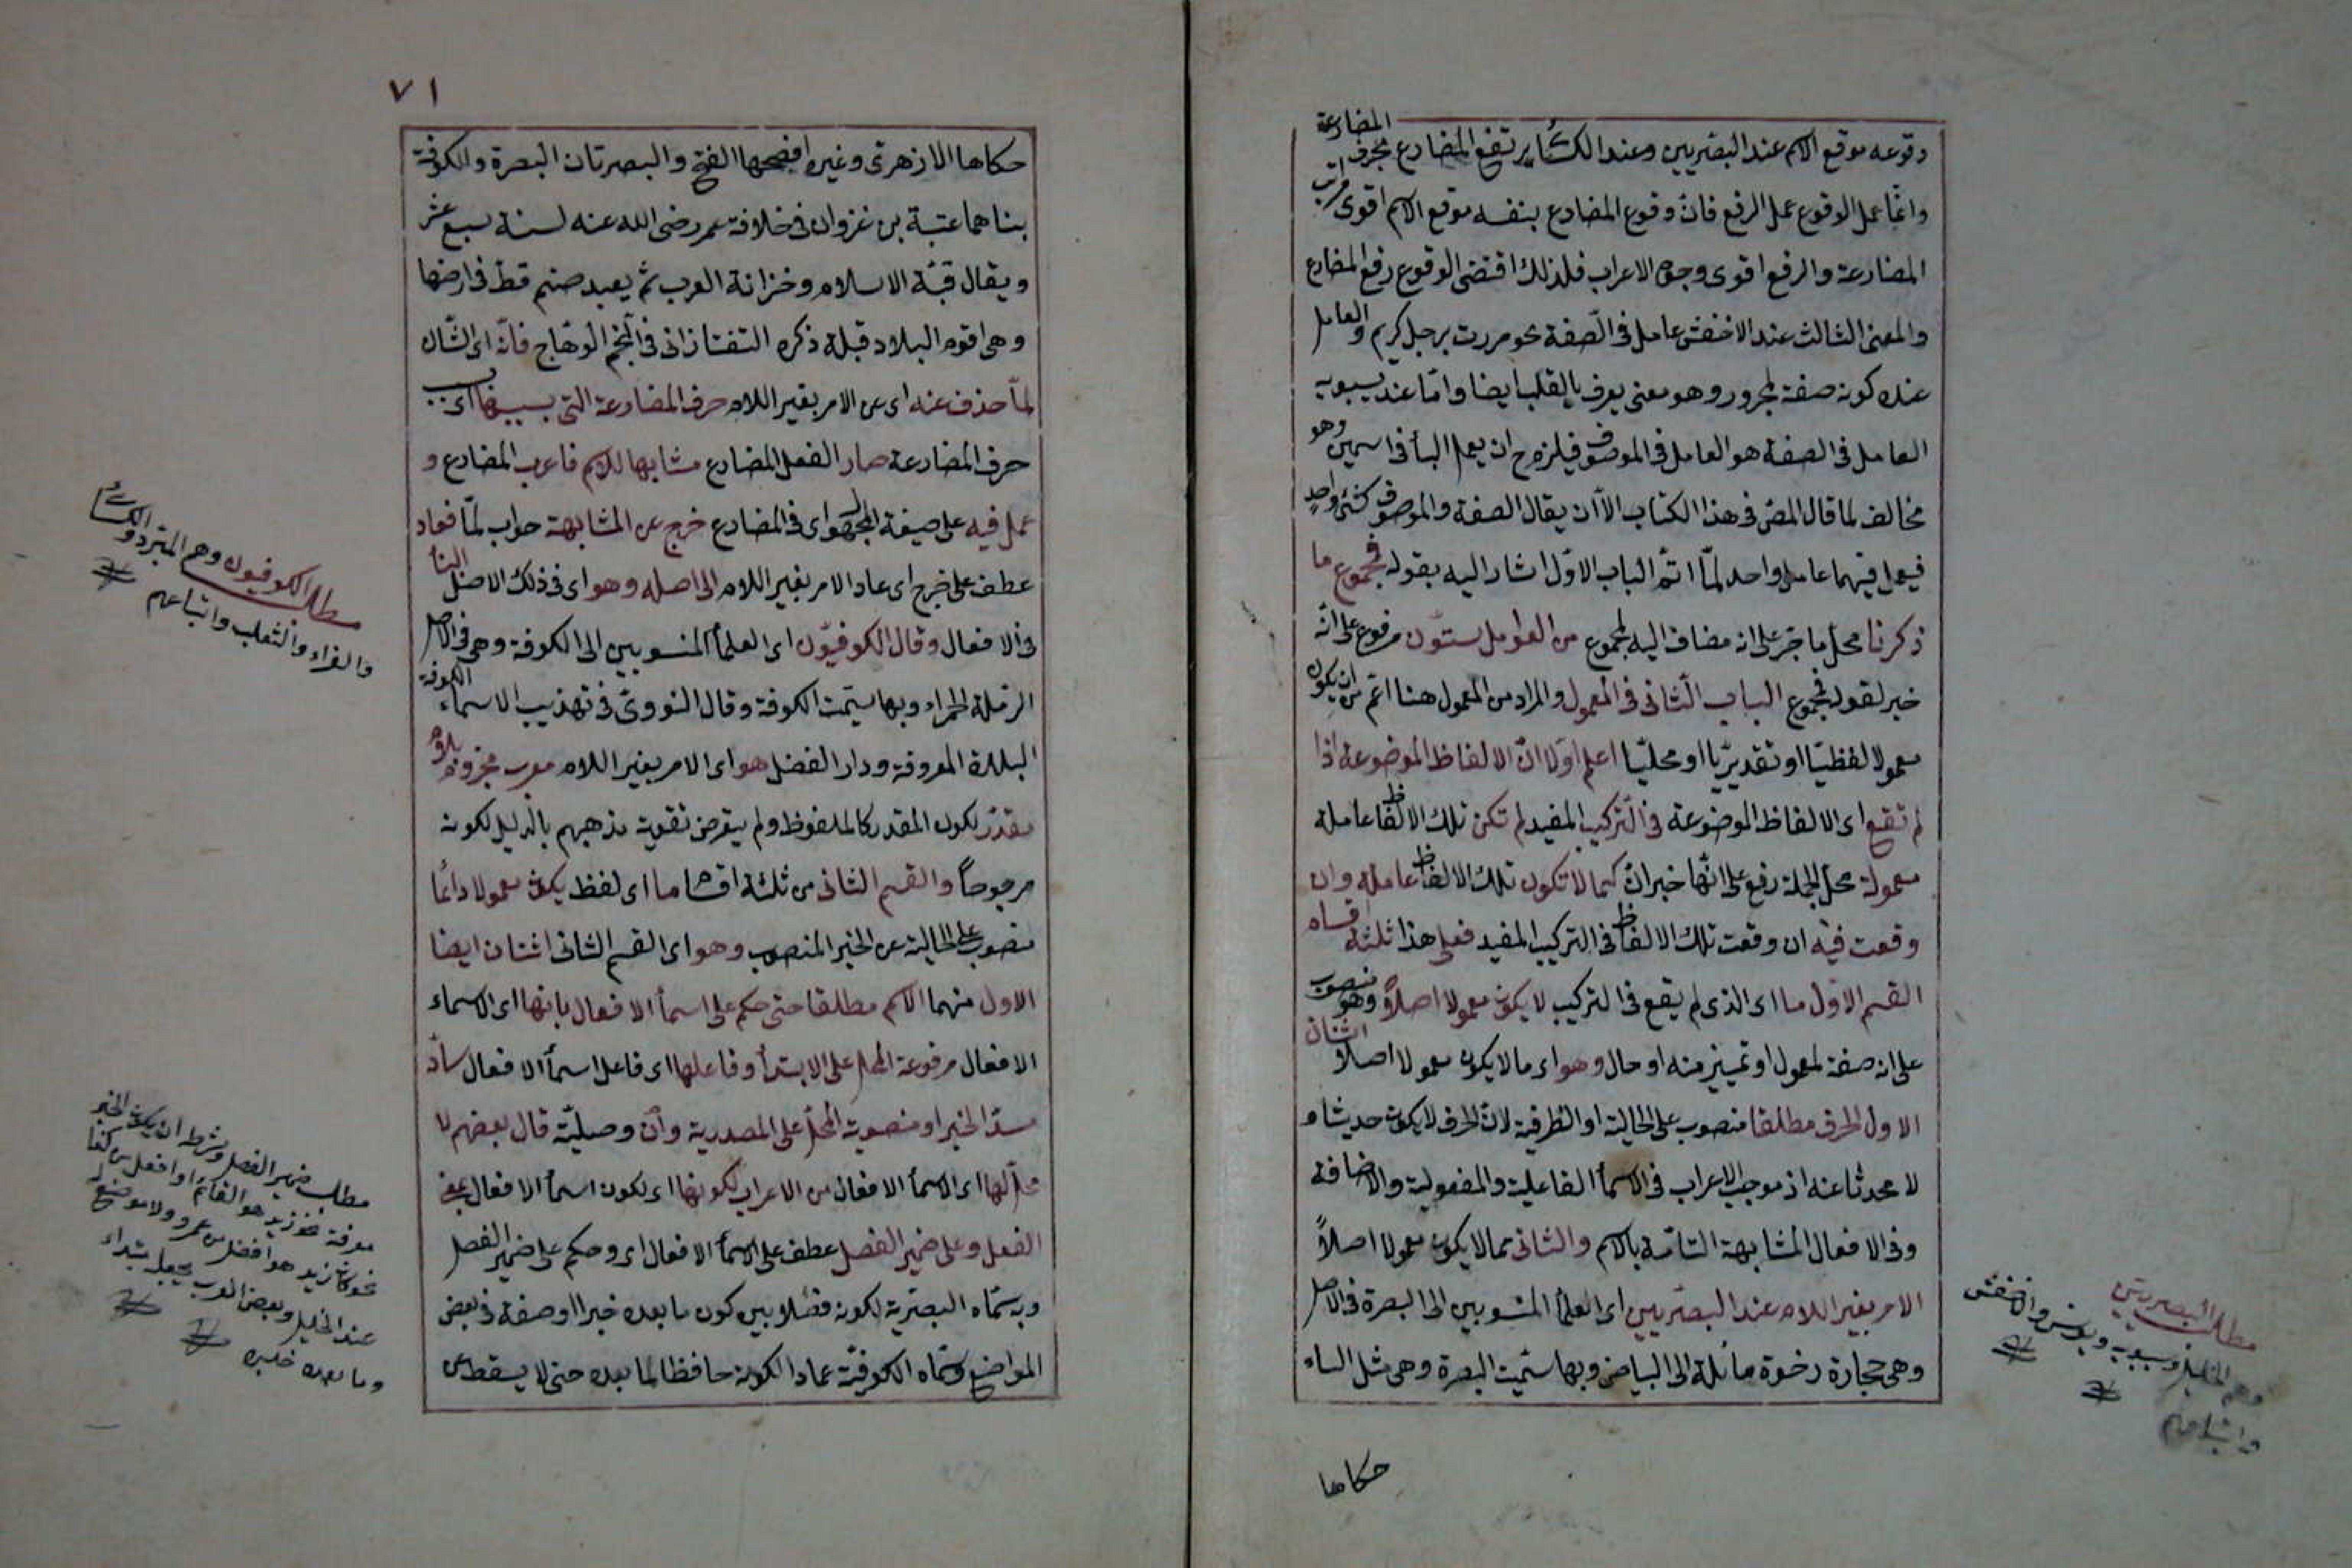 وقوعه موقع الاسم عند البصريين وعند الكسائي يرتفع المضارع بحرف المضارعة
وانما عمل الوقوع عمل الرفع فان وقوع المضارع بنفسه موقع الاسم اقوى مراتب
المضارعة والرفع اقوى وجوه الاعراب فلذلك اقتضى الوقوع رفع المضارع
والمعنى الثالث عند الاخفش عامل في الصفة نحو مررت برجل كريم والعامل
عنده كونه صفة لمجرور وهو معنى يعرف بالقلب ايضا واما عند سيبويه
العامل في الصفة هو العامل في الموصوف فيلزم ح ان يعمل البأ في اسمين وهو
مخالف لما قال المص في هذا الكتاب الا ان يقال الصفة والموصوف كشئ واحد
فيعمل فيهما عامل واحد لما اتم الباب الاول اشار اليه بقوله فجموع ما
ذكرنا محل ما جر على انه مضاف اليه لمجموع من العوامل ستون مرفوع على انه
خبر لقوله فجموع الباب الثانى فى المعمول والمراد من المعمول هنا اتم من ان يكون
معمولا لفظيا او تقديريا او محليا اعلم اولا ان الالفاظ الموضوعة اذا
لم تقع اى الالفاظ الموضوعة فى التركيب المفيد لم تكن تلك الالفاظ عاملة
معمولة محل الجملة رفع على انها خبر ان كما لا تكون تلك الالفاظ عاملة وان
وقعت فيه ان وقعت تلك الالفاظ فى التركيب المفيد فعلى هذا ثلثة اقسام
القسم الاول ما اى الذى لم يقع فى التركيب لا يكون معمولا اصلا وهو منصوب
على انه صفة لمعمول او تمييز منه او حال وهو اى ما لا يكون معمولا اصلا اثنان
الاول الحرف مطلقا منصوب على الحالية او الظرفية لان الحرف لا يكون حديثا و
لا محدثا عنه اذ موجب الاعراب فى الاسمأ الفاعلية والمفعولية والاضافة
وفى الافعال المشابهة التامة بالاسم والثانى مما لا يكون معمولا اصلاً
الامر بغير اللام عند البصريين اى العلمأ المنسوبين الى البصرة فى الاصل
وهى حجارة رخوة مائلة الى البياض وبها سميت البصرة وهى مثل الباء
حكاها
مطلب البصريين
وهم الخليل وسيبويه ويونس والاخفش
واتباعهم
٧١
حكاها الازهرى وغيره افصحها الفتح والبصرتان البصرة والكوفة
بناهما عتبة بن غزوان فى خلافة عمر رضى الله عنه لسنة سبع عشر
ويقال قبة الاسلام وخزانة العرب ثم يعبد صنم قط فى ارضها
وهى اقوم البلاد قبلة ذكره التفتازانى فى النجم الوهاج فانه اى الشان
لما حذف عنه اى عن الامر بغير اللام حرف المضارعة التى بسببها اى بسبب
حرف المضارعة صار الفعل المضارع مشابها للاسم فاعرب المضارع و
عمل فيه على صيغة المجهول اى فى المضارع خرج عن المشابهة جواب لما فعاد
عطف على خرج اى عاد الامر بغير اللام الى اصله وهو اى فى ذلك الاصل البنأ
فى الافعال وقال الكوفيون اى العلمأ المنسوبين الى الكوفة وهى فى الاصل
الرملة الحمراء وبها سميت الكوفة وقال النووى فى تهذيب الاسماء الكوفة
البلدة المعروفة ودار الفضل هو اى الامر بغير اللام معرب مجزوم بلام
مقدر لكون المقدر كالملفوظ ولم يتعرض تقوية مذهبهم بالدليل لكونه
مرجوحاً والقسم الثانى من ثلثة اقسام ما اى لفظ يكون معمولا دائما
منصوب على الحالية عن الخبر المنصوب وهو اى القسم الثانى اثنان ايضا
الاول منهما الاسم مطلقا حتى حكم على اسمأ الافعال بانها اى الاسماء
الافعال مرفوعة المحل على الابتدأ وفاعلها اى فاعل اسمأ الافعال ساد
مسد الخبر او منصوبة المحل على المصدرية وان وصلية قال بعضهم لا
محل لها اى الاسمأ الافعال من الاعراب لكونها اى لكون اسمأ الافعال بمعنى
الفعل وعلى ضمير الفصل عطف على الاسمأ الافعال اى وحكم على ضمير الفصل
وبه سماه البصرية لكونه فصلا بين كون ما بعده خبرا او صفة فى بعض
المواضع وسماه الكوفية عمادا لكونه حافظا لما بعده حتى لا يسقط عن
مطلب الكوفيون وهم المبرد والكسائى
والفراء والثعلب واتباعهم
مطلب ضمير الفصل وشرطه ان يكون الخبر
معرفة نحو زيد هو القائم او افعل من كذا
نحو كان زيد هو افضل من عمرو ولا موضع له
عند الخليل وبعض العرب يجعله مبتداء
وما بعده خبره